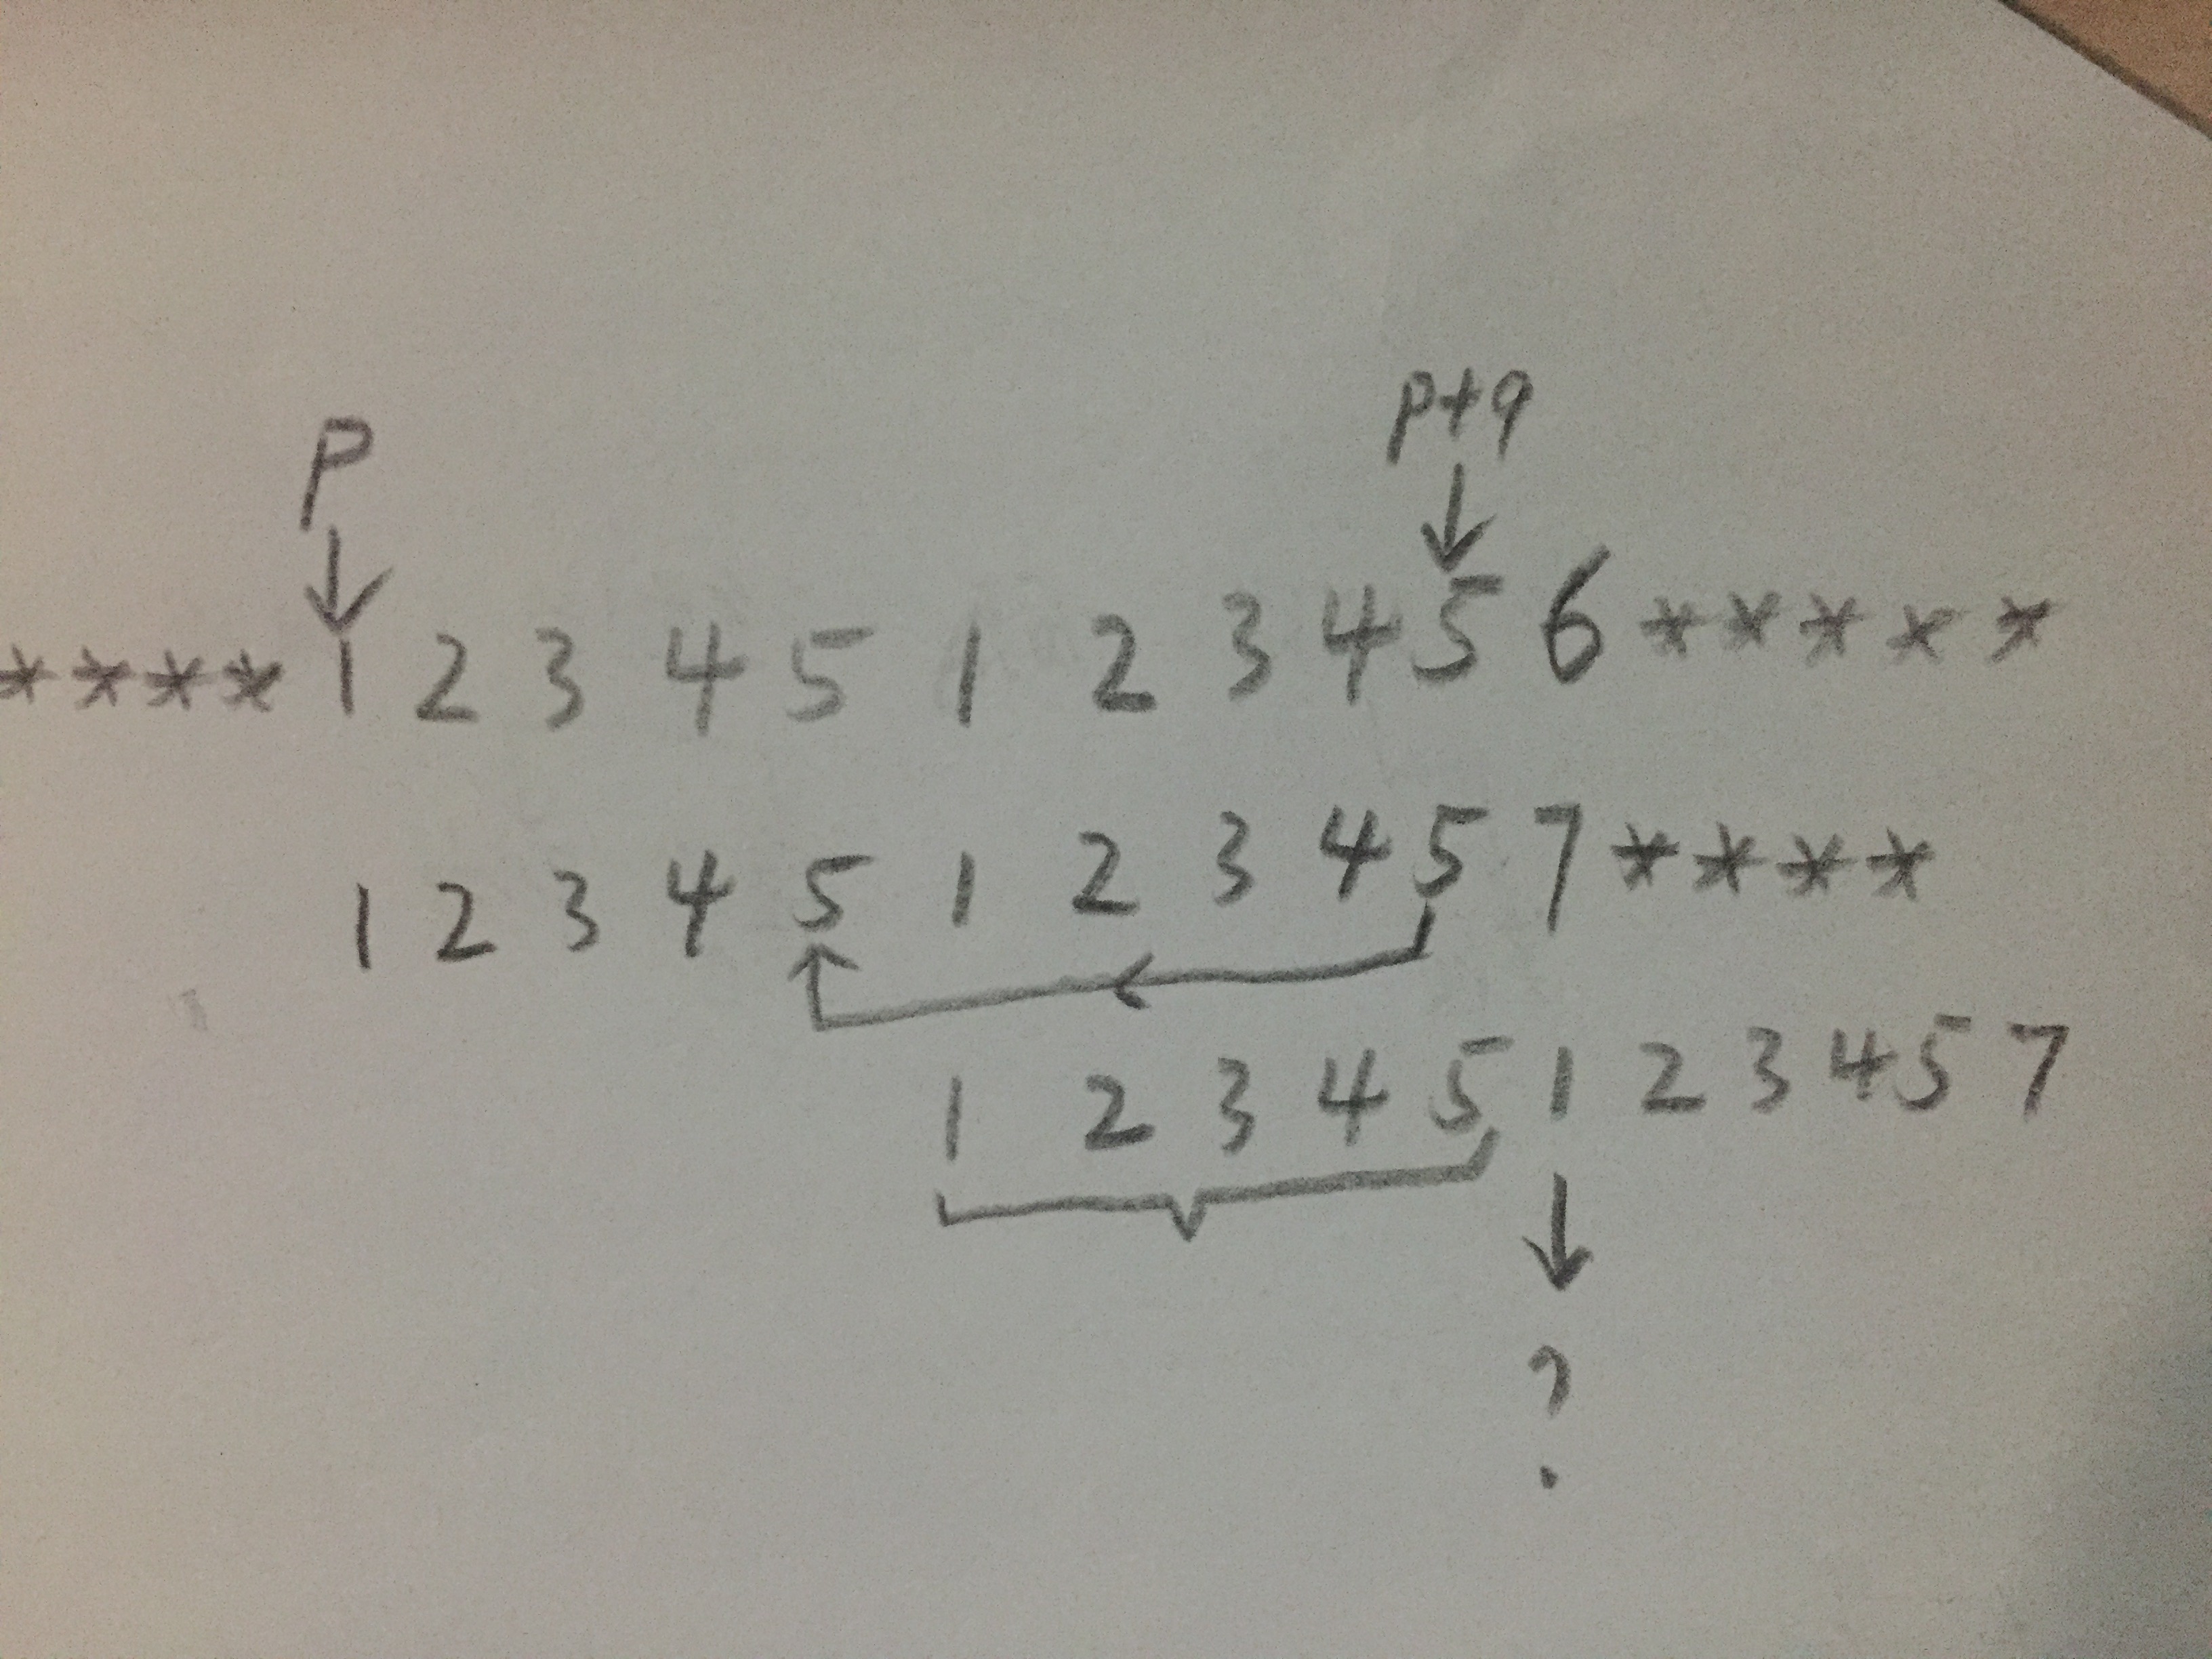 p p+9
****1234512345 6*****
1234512345 7****
12345123457
?